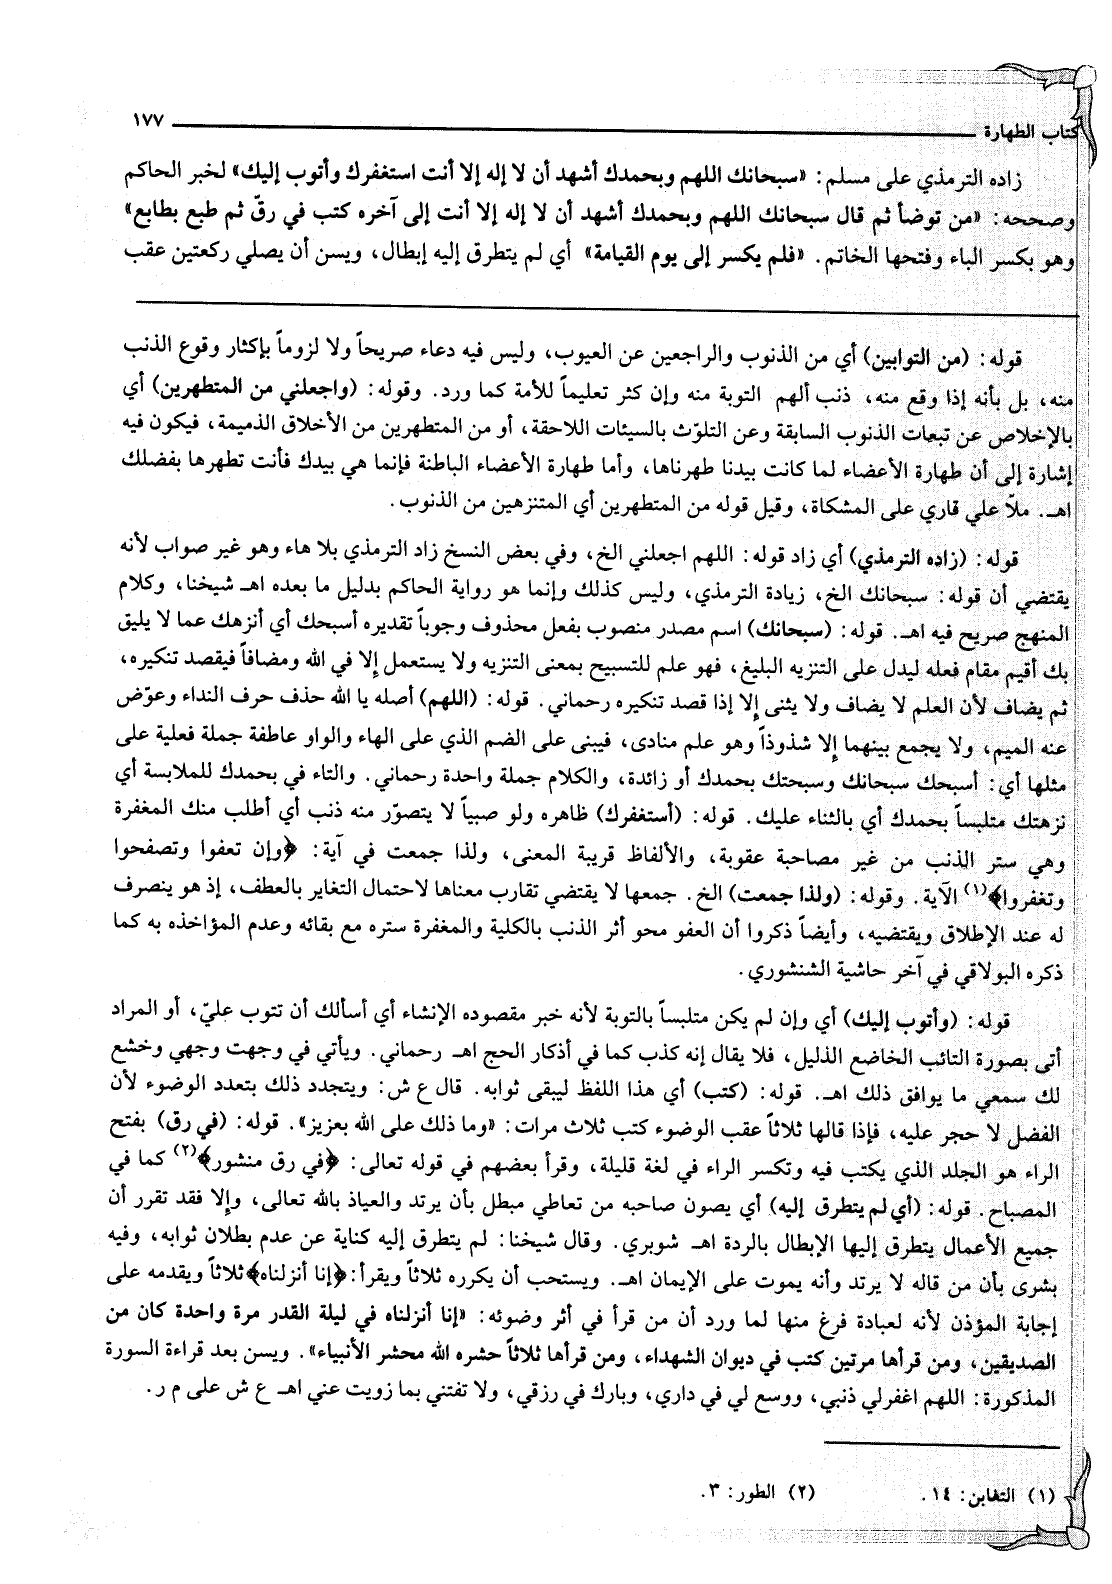 كتاب الطهارة ١٧٧
زاده الترمذي على مسلم: «سبحانك اللهم وبحمدك أشهد أن لا إله إلا أنت استغفرك وأتوب إليك» لخبر الحاكم
وصححه: «من توضأ ثم قال سبحانك اللهم وبحمدك أشهد أن لا إله إلا أنت إلى آخره كتب في رقّ ثم طبع بطابع»
وهو بكسر الباء وفتحها الخاتم. «فلم يكسر إلى يوم القيامة» أي لم يتطرق إليه إبطال، ويسن أن يصلي ركعتين عقب
قوله: (من التوابين) أي من الذنوب والراجعين عن العيوب، وليس فيه دعاء صريحاً ولا لزوماً بإكثار وقوع الذنب
منه، بل بأنه إذا وقع منه، ذنب ألهم التوبة منه وإن كثر تعليماً للأمة كما ورد. وقوله: (واجعلني من المتطهرين) أي
بالإخلاص عن تبعات الذنوب السابقة وعن التلوّث بالسيئات اللاحقة، أو من المتطهرين من الأخلاق الذميمة، فيكون فيه
إشارة إلى أن طهارة الأعضاء لما كانت بيدنا طهرناها، وأما طهارة الأعضاء الباطنة فإنما هي بيدك فأنت تطهرها بفضلك
اهـ. ملّا علي قاري على المشكاة، وقيل قوله من المتطهرين أي المتنزهين من الذنوب.
قوله: (زاده الترمذي) أي زاد قوله: اللهم اجعلني الخ، وفي بعض النسخ زاد الترمذي بلا هاء وهو غير صواب لأنه
يقتضي أن قوله: سبحانك الخ، زيادة الترمذي، وليس كذلك وإنما هو رواية الحاكم بدليل ما بعده اهـ شيخنا، وكلام
المنهج صريح فيه اهـ. قوله: (سبحانك) اسم مصدر منصوب بفعل محذوف وجوباً تقديره أسبحك أي أنزهك عما لا يليق
بك أقيم مقام فعله ليدل على التنزيه البليغ، فهو علم للتسبيح بمعنى التنزيه ولا يستعمل إلا في الله ومضافاً فيقصد تنكيره،
ثم يضاف لأن العلم لا يضاف ولا يثنى إلا إذا قصد تنكيره رحماني. قوله: (اللهم) أصله يا الله حذف حرف النداء وعوّض
عنه الميم، ولا يجمع بينهما إلا شذوذاً وهو علم منادى، فيبنى على الضم الذي على الهاء والواو عاطفة جملة فعلية على
مثلها أي: أسبحك سبحانك وسبحتك بحمدك أو زائدة، والكلام جملة واحدة رحماني. والتاء في بحمدك للملابسة أي
نزهتك متلبساً بحمدك أي بالثناء عليك. قوله: (أستغفرك) ظاهره ولو صبياً لا يتصوّر منه ذنب أي أطلب منك المغفرة
وهي ستر الذنب من غير مصاحبة عقوبة، والألفاظ قريبة المعنى، ولذا جمعت في آية: ﴿وإن تعفوا وتصفحوا
وتغفروا﴾(١) الآية. وقوله: (ولذا جمعت) الخ. جمعها لا يقتضي تقارب معناها لاحتمال التغاير بالعطف، إذ هو ينصرف
له عند الإطلاق ويقتضيه، وأيضاً ذكروا أن العفو محو أثر الذنب بالكلية والمغفرة ستره مع بقائه وعدم المؤاخذه به كما
ذكره البولاقي في آخر حاشية الشنشوري.
قوله: (وأتوب إليك) أي وإن لم يكن متلبساً بالتوبة لأنه خبر مقصوده الإنشاء أي أسألك أن تتوب عليّ، أو المراد
أتى بصورة التائب الخاضع الذليل، فلا يقال إنه كذب كما في أذكار الحج اهـ رحماني. ويأتي في وجهت وجهي وخشع
لك سمعي ما يوافق ذلك اهـ. قوله: (كتب) أي هذا اللفظ ليبقى ثوابه. قال ع ش: ويتجدد ذلك بتعدد الوضوء لأن
الفضل لا حجر عليه، فإذا قالها ثلاثاً عقب الوضوء كتب ثلاث مرات: «وما ذلك على الله بعزيز». قوله: (في رق) بفتح
الراء هو الجلد الذي يكتب فيه وتكسر الراء في لغة قليلة، وقرأ بعضهم في قوله تعالى: ﴿في رق منشور﴾(٢) كما في
المصباح. قوله: (أي لم يتطرق إليه) أي يصون صاحبه من تعاطي مبطل بأن يرتد والعياذ بالله تعالى، وإلا فقد تقرر أن
جميع الأعمال يتطرق إليها الإبطال بالردة اهـ شوبري. وقال شيخنا: لم يتطرق إليه كناية عن عدم بطلان ثوابه، وفيه
بشرى بأن من قاله لا يرتد وأنه يموت على الإيمان اهـ. ويستحب أن يكرره ثلاثاً ويقرأ: ﴿إنا أنزلناه﴾ ثلاثاً ويقدمه على
إجابة المؤذن لأنه لعبادة فرغ منها لما ورد أن من قرأ في أثر وضوئه: «إنا أنزلناه في ليلة القدر مرة واحدة كان من
الصديقين، ومن قرأها مرتين كتب في ديوان الشهداء، ومن قرأها ثلاثاً حشره الله محشر الأنبياء». ويسن بعد قراءة السورة
المذكورة: اللهم اغفرلي ذنبي، ووسع لي في داري، وبارك في رزقي، ولا تفتني بما زويت عني اهـ ع ش على م ر.
(١) التغابن: ١٤. (٢) الطور: ٣.